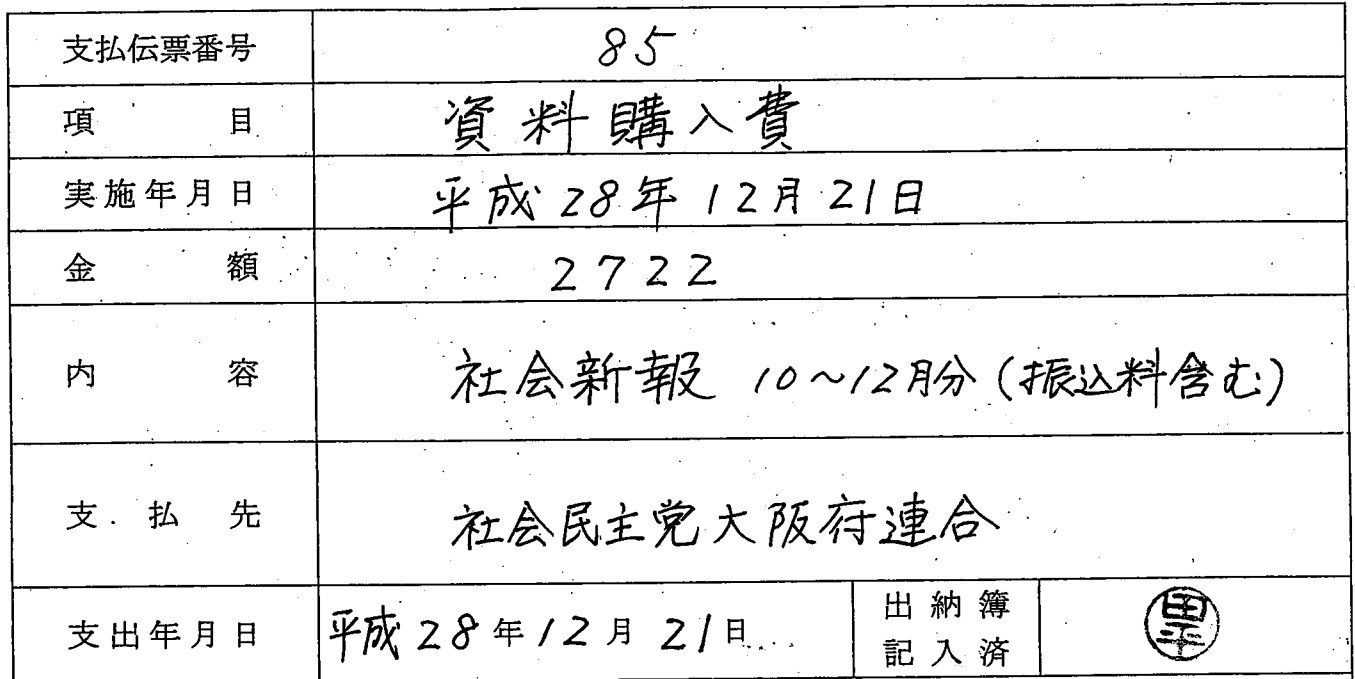 支払伝票番号 85
項目 資料購入費
実施年月日 平成28年12月21日
金額 2722
内容 社会新報 10~12月分(振込料含む)
支払先 社会民主党大阪府連合
支出年月日 平成28年12月21日 出納簿
記入済